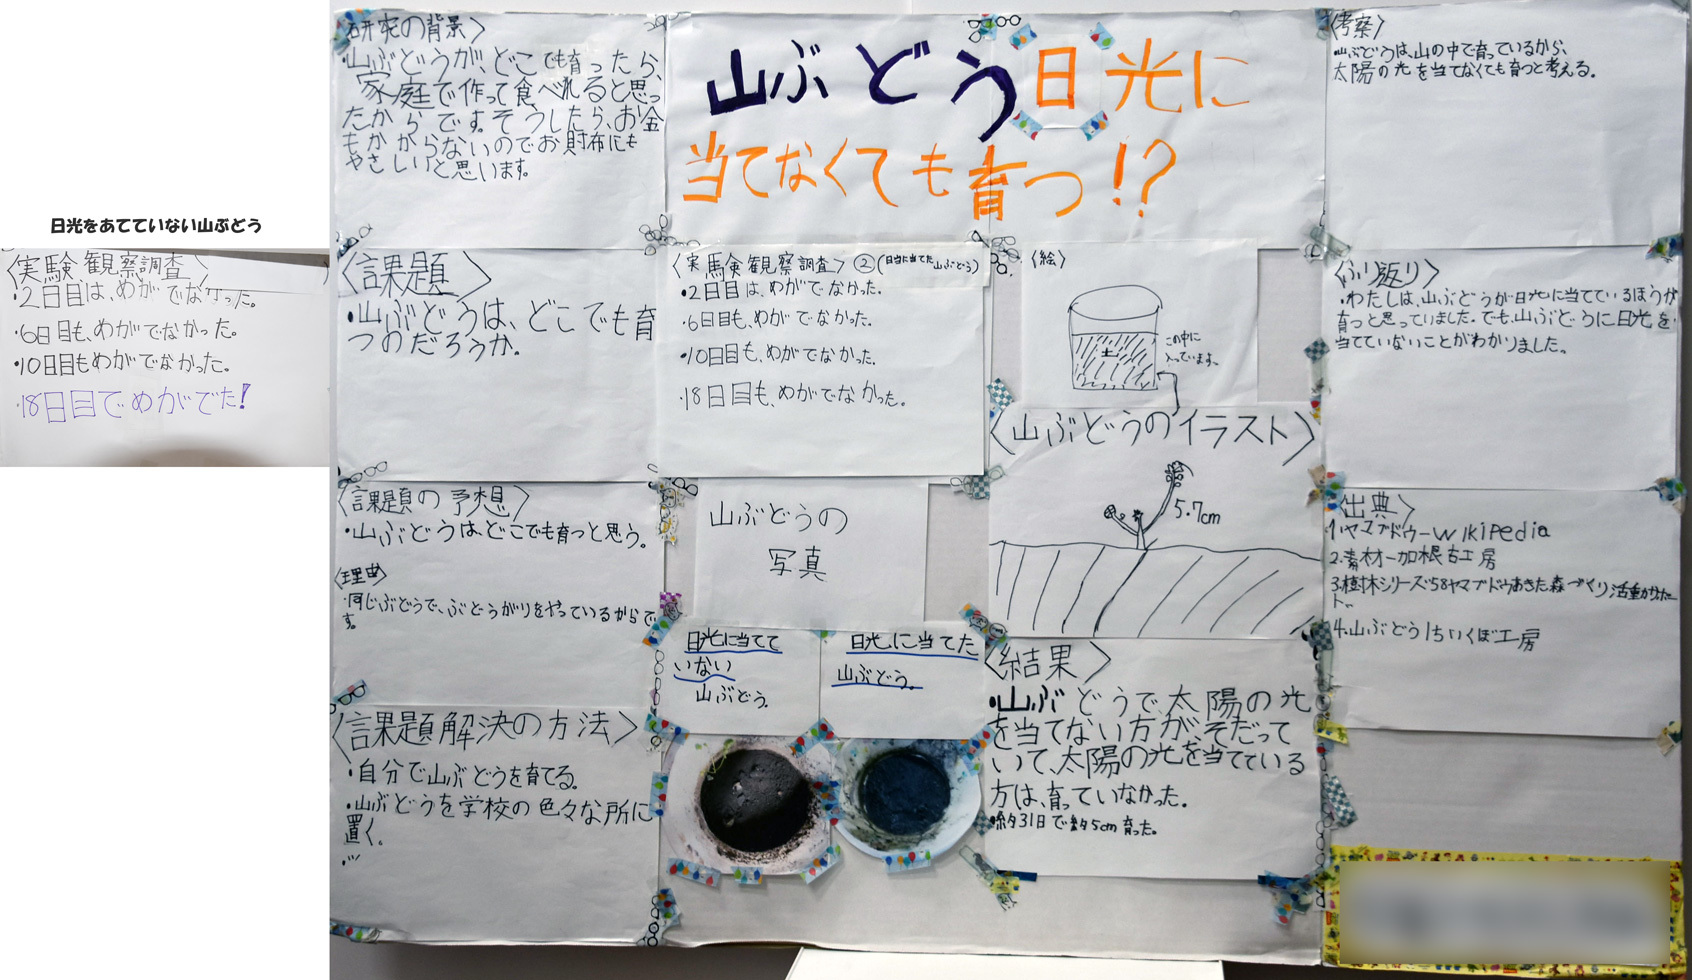 日光をあてていない山ぶどう
〈実験観察調査〉
・2日目は、めがでなかった。
・6日目も、めがでなかった。
・10日目もめがでなかった。
・18日目でめがでた!
研究の背景〉
・山ぶどうが、どこでも育ったら、
家庭で作って食べれると思っ
たからです。そうしたら、お金
もかからないのでお財布にも
やさしいと思います。
〈課題〉
・山ぶどうは、どこでも育
つのだろうか。
〈課題の予想〉
・山ぶどうは、どこでも育つと思う。
〈理由〉
・同じぶどうで、ぶどうがりをやっているからで
す。
〈課題解決の方法〉
・自分で山ぶどうを育てる。
・山ぶどうを学校の色々な所に
置く。
山ぶどう日光に
当てなくても育つ!?
〈実験観察調査〉②(日光に当てた山ぶどう)
・2日目は、めがでなかった。
・6日目も、めがでなかった。
・10日目も、めがでなかった。
・18日目も、めがでなかった。
〈絵〉
土
この中に
入っています。
〈山ぶどうのイラスト〉
5.7cm
山ぶどうの
写真
日光に当てて
いない
山ぶどう。
日光に当てた
山ぶどう。
〈結果〉
・山ぶどうで、太陽の光
を当てない方が、そだって
いて、太陽の光を当てている
方は、育っていなかった。
・約31日で約5cm育った。
〈考察〉
・山ぶどうは、山の中で育っているから、
太陽の光を当てなくても育つと考える。
〈ふり返り〉
・わたしは、山ぶどうが日光に当てているほうが
育つと思っていました。でも、山ぶどうに日光を
当てていないことがわかりました。
〈出典〉
1.ヤマブドウーWikiPedia
2.素材ー加根古工房
3.樹木シリーズ58ヤマブドウあきた森づくり活動サポート
4.山ぶどう/ちいくぼ工房